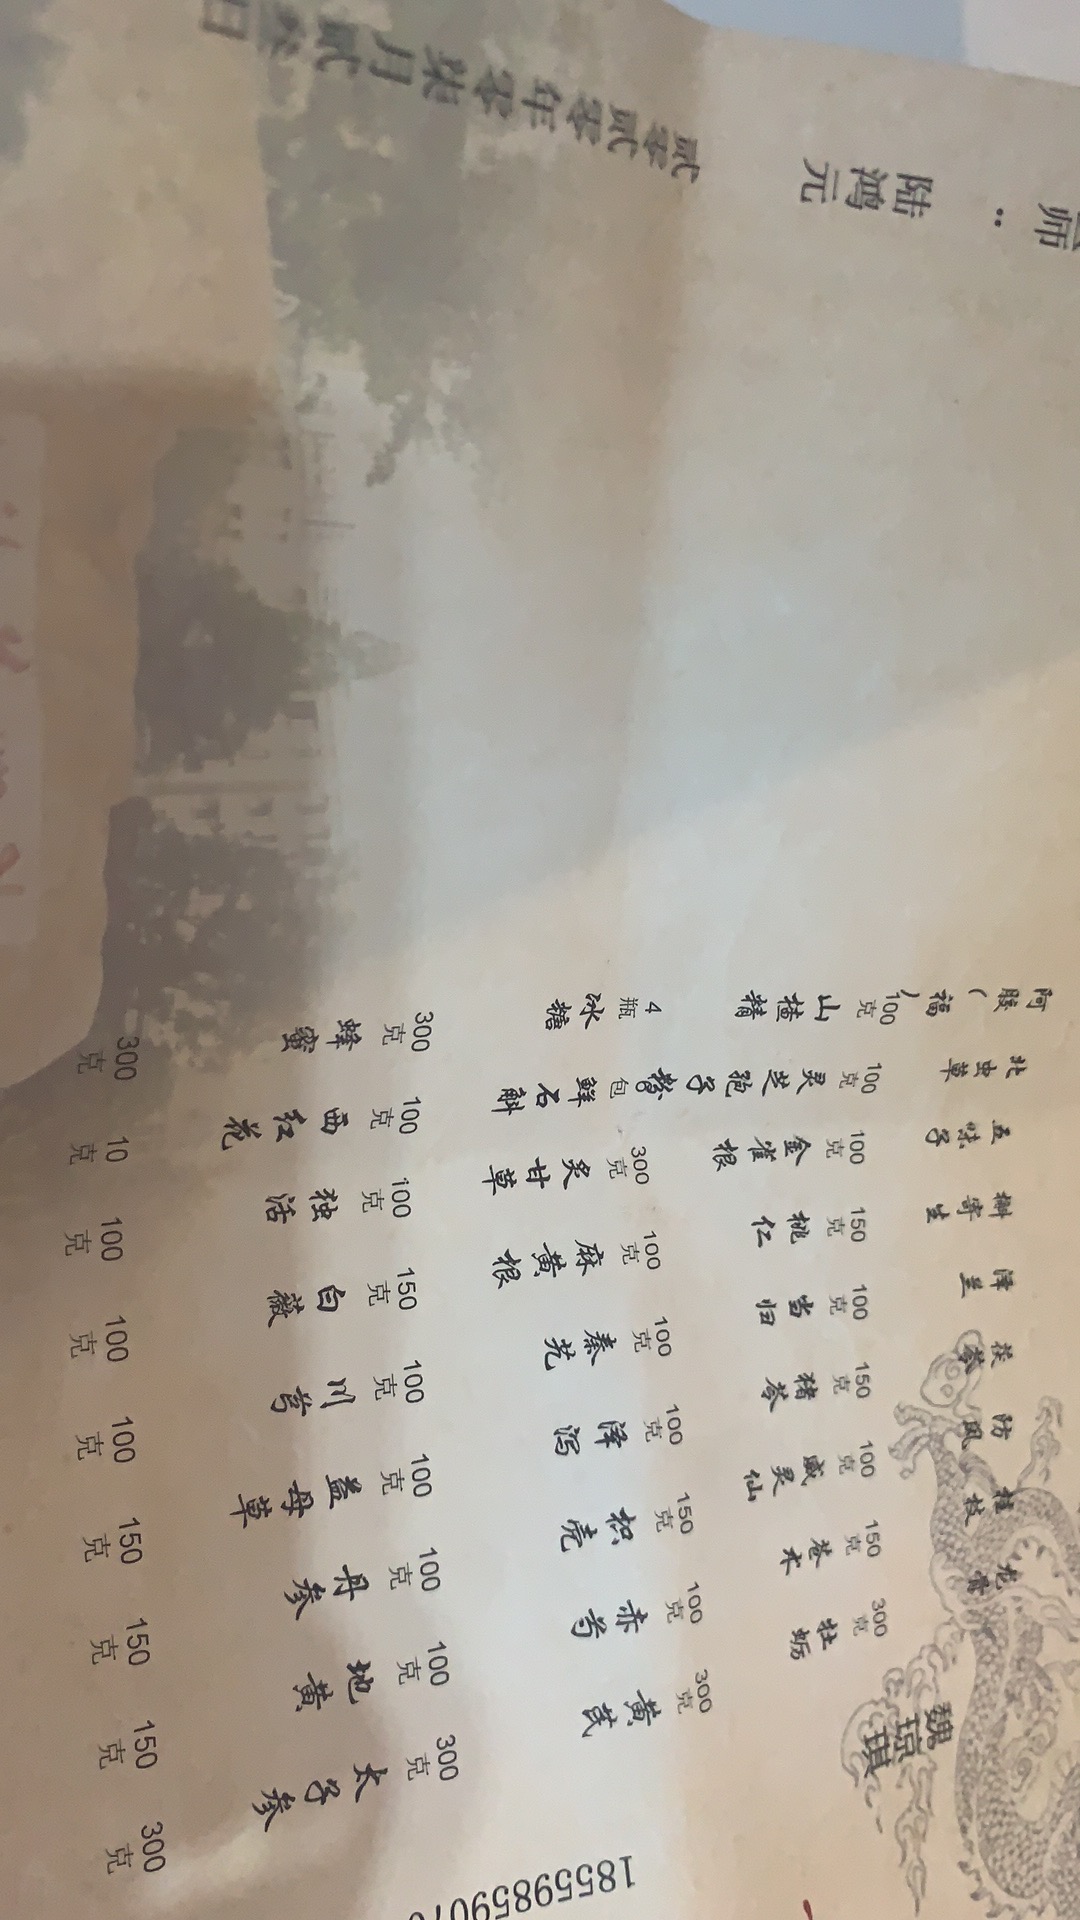 魏琼琪
18559859070
龙骨 300克
桂枝 150克
防风 100克
茯苓 150克
泽兰 100克
槲寄生 150克
五味子 100克
北虫草 100克
阿胶（福） 100克
牡蛎 300克
苍术 100克
威灵仙 150克
猪苓 100克
当归 100克
桃仁 100克
金雀根 300克
灵芝孢子粉 包
山楂精 4瓶
黄芪 300克
赤芍 100克
枳壳 100克
泽泻 100克
秦艽 100克
麻黄根 150克
炙甘草 100克
鲜石斛 100克
冰糖 300克
太子参 300克
地黄 150克
丹参 150克
益母草 150克
川芎 100克
白薇 100克
独活 100克
西红花 10克
蜂蜜 300克
师：陆鸿元
贰零贰零年零柒月贰叁日